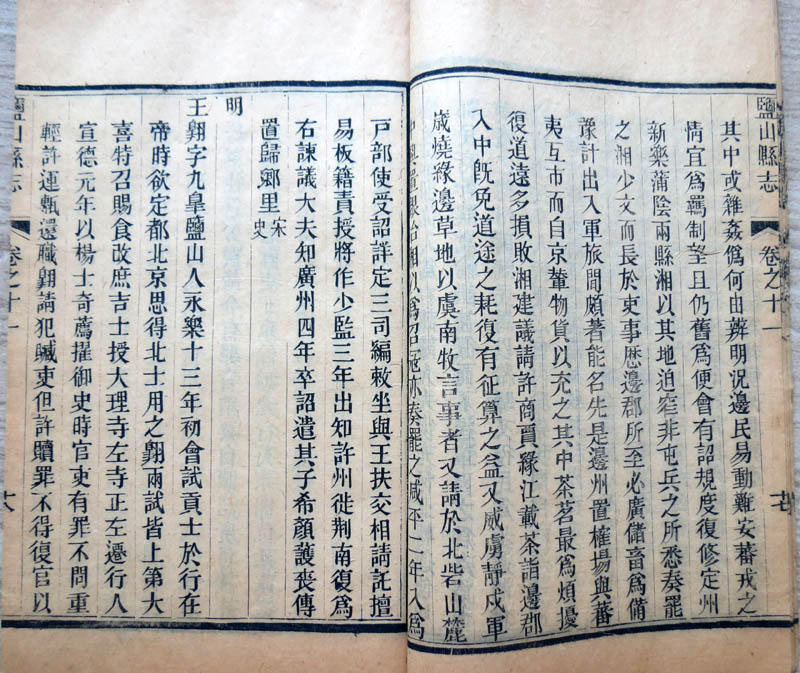 鹽山縣志
卷之十一
其中或雜姦僞何由辨明況邊民易動難安蕃戎之
情宜爲羈制望且仍舊爲便會有詔規度復修定州
新樂蒲陰兩縣湘以其地迫窄非屯兵之所悉奏罷
之湘少文而長於吏事歷邊郡所至必廣儲畜爲備
豫計出入軍旅間頗著能名先是邊州置榷場與蕃
夷互市而自京輦物貨以充之其中茶茗最爲煩擾
復道遠多損敗湘建議請許商賈緣江載茶詣邊郡
入中旣免道途之耗復有征算之益又威虜靜戍軍
歲燒緣邊草地以虞南牧言事者又請於北砦山麓
中興置銀冶湘以爲召寇亦奏罷之咸平二年入爲
戶部使受詔詳定三司編敕坐與王扶交相請託擅
易板籍責授將作少監三年出知許州徙荆南復爲
右諫議大夫知廣州四年卒詔遣其子希顏護喪傳
置歸鄉里宋史
明
王翺字九臯鹽山人永樂十三年初會試貢士於行在
帝時欲定都北京思得北士用之翺兩試皆上第大
喜特召賜食改庶吉士授大理寺左寺正左遷行人
宣德元年以楊士奇薦擢御史時官吏有罪不問重
輕許運甎還職翺請犯贓吏但許贖罪不得復官以
鹽山縣志
卷之十一